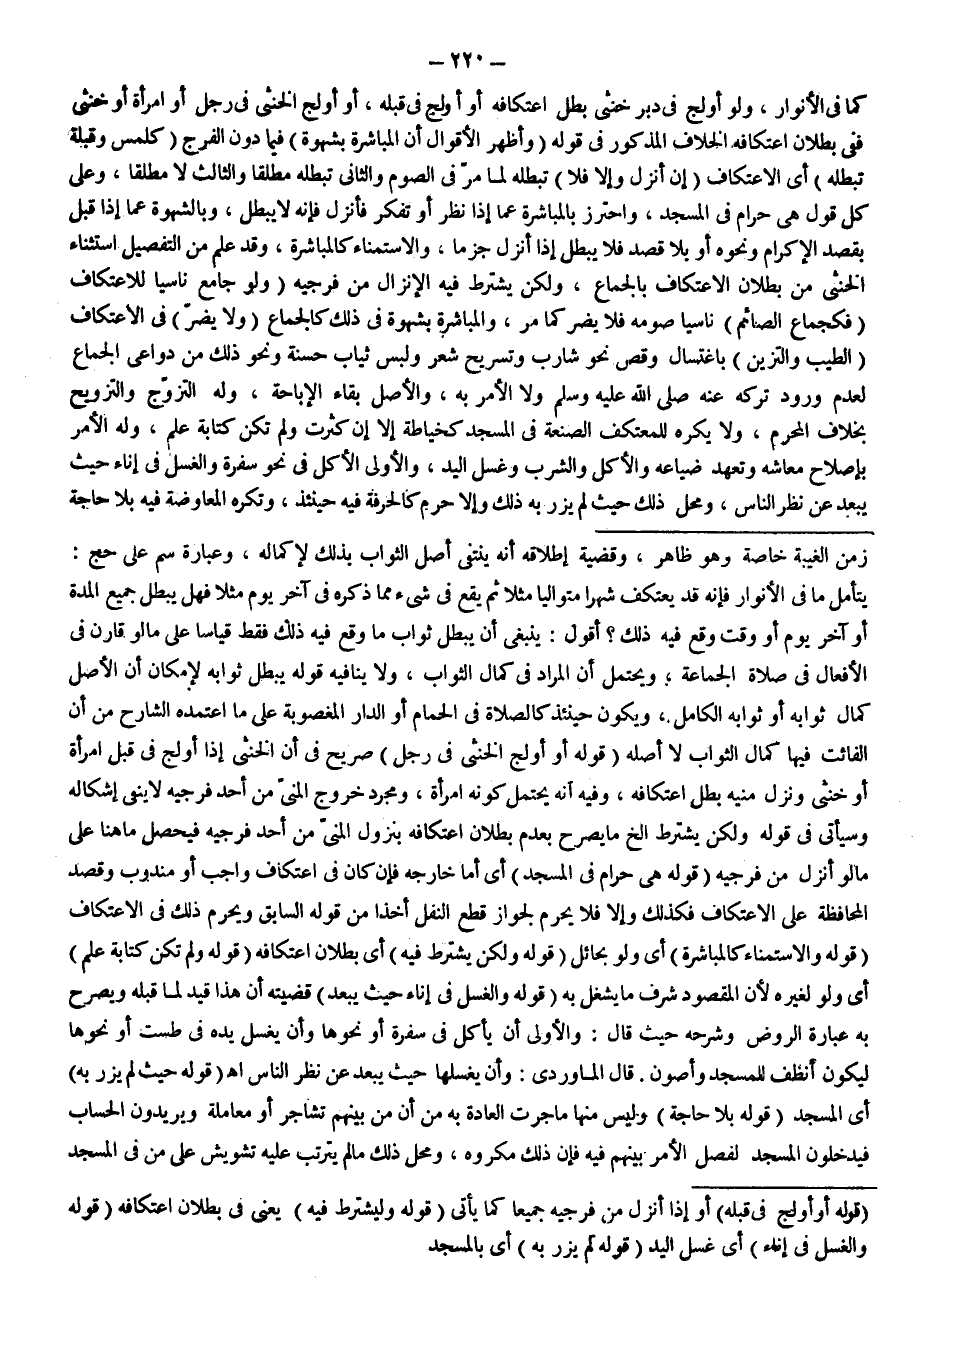 – ٢٢٠ –
كما فى الأنوار ، ولو أولج فى دبر خنثى بطل اعتكافه أو أولج فى قبله ، أو أولج الخنثى فى رجل أو امرأة أو خنثى
ففى بطلان اعتكافه الخلاف المذكور فى قوله ( وأظهر الأقوال أن المباشرة بشهوة ) فيما دون الفرج ( كلمس وقبلة
تبطله ) أى الاعتكاف ( إن أنزل وإلا فلا ) تبطله لما مرّ فى الصوم والثانى تبطله مطلقا والثالث لا مطلقا ، وعلى
كل قول هى حرام فى المسجد ، واحترز بالمباشرة عما إذا نظر أو تفكر فأنزل فإنه لا يبطل ، وبالشهوة عما إذا قبل
بقصد الإكرام ونحوه أو بلا قصد فلا يبطل إذا أنزل جزما ، والاستمناء كالمباشرة ، وقد علم من التفصيل استثناء
الخنثى من بطلان الاعتكاف بالجماع ، ولكن يشترط فيه الإنزال من فرجيه ( ولو جامع ناسيا للاعتكاف
( فكجماع الصائم ) ناسيا صومه فلا يضر كما مر ، والمباشرة بشهوة فى ذلك كالجماع ( ولا يضرّ ) فى الاعتكاف
( الطيب والتزين ) باغتسال وقص نحو شارب وتسريح شعر ولبس ثياب حسنة ونحو ذلك من دواعى الجماع
لعدم ورود تركه عنه صلى الله عليه وسلم ولا الأمر به ، والأصل بقاء الإباحة ، وله التزوّج والتزويج
بخلاف المحرم ، ولا يكره للمعتكف الصنعة فى المسجد كخياطة إلا إن كثرت ولم تكن كتابة علم ، وله الأمر
بإصلاح معاشه وتعهد ضياعه والأكل والشرب وغسل اليد ، والأولى الأكل فى نحو سفرة والغسل فى إناء حيث
يبعد عن نظر الناس ، ومحل ذلك حيث لم يزر به ذلك وإلا حرم كالحرفة فيه حينئذ ، وتكره المعاوضة فيه بلا حاجة
زمن الغيبة خاصة وهو ظاهر ، وقضية إطلاقه أنه ينتفى أصل الثواب بذلك لإكماله ، وعبارة سم على حج :
يتأمل ما فى الأنوار فإنه قد يعتكف شهرا متواليا مثلا ثم يقع فى شىء مما ذكره فى آخر يوم مثلا فهل يبطل جميع المدة
أو آخر يوم أو وقت وقع فيه ذلك ؟ أقول : ينبغى أن يبطل ثواب ما وقع فيه ذلك فقط قياسا على مالو قارن فى
الأفعال فى صلاة الجماعة ، ويحتمل أن المراد فى كمال الثواب ، ولا ينافيه قوله يبطل ثوابه لإمكان أن الأصل
كمال ثوابه أو ثوابه الكامل ، ويكون حينئذ كالصلاة فى الحمام أو الدار المغصوبة على ما اعتمده الشارح من أن
الفائت فيها كمال الثواب لا أصله ( قوله أو أولج الخنثى فى رجل ) صريح فى أن الخنثى إذا أولج فى قبل امرأة
أو خنثى ونزل منيه بطل اعتكافه ، وفيه أنه يحتمل كونه امرأة ، ومجرد خروج المنىّ من أحد فرجيه لاينفى إشكاله
وسيأتى فى قوله ولكن يشترط الخ مايصرح بعدم بطلان اعتكافه بنزول المنىّ من أحد فرجيه فيحصل ماهنا على
مالو أنزل من فرجيه ( قوله هى حرام فى المسجد ) أى أما خارجه فإن كان فى اعتكاف واجب أو مندوب وقصد
المحافظة على الاعتكاف فكذلك وإلا فلا يحرم لجواز قطع النفل أخذا من قوله السابق ويحرم ذلك فى الاعتكاف
( قوله والاستمناء كالمباشرة ) أى ولو بحائل ( قوله ولكن يشترط فيه ) أى بطلان اعتكافه ( قوله ولم تكن كتابة علم )
أى ولو لغيره لأن المقصود شرف مايشغل به ( قوله والغسل فى إناء حيث يبعد ) قضيته أن هذا قيد لما قبله ويصرح
به عبارة الروض وشرحه حيث قال : والأولى أن يأكل فى سفرة أو نحوها وأن يغسل يده فى طست أو نحوها
ليكون أنظف للمسجد وأصون . قال الماوردى : وأن يغسلها حيث يبعد عن نظر الناس اه ( قوله حيث لم يزر به )
أى المسجد ( قوله بلا حاجة ) وليس منها ماجرت العادة به من أن من بينهم تشاجر أو معاملة ويريدون الحساب
فيدخلون المسجد لفصل الأمر بينهم فيه فإن ذلك مكروه ، ومحل ذلك مالم يترتب عليه تشويش على من فى المسجد
( قوله أو أولج فى قبله ) أو إذا أنزل من فرجيه جميعا كما يأتى ( قوله وليشترط فيه ) يعنى فى بطلان اعتكافه ( قوله
والغسل فى إناء ) أى غسل اليد ( قوله لم يزر به ) أى بالمسجد